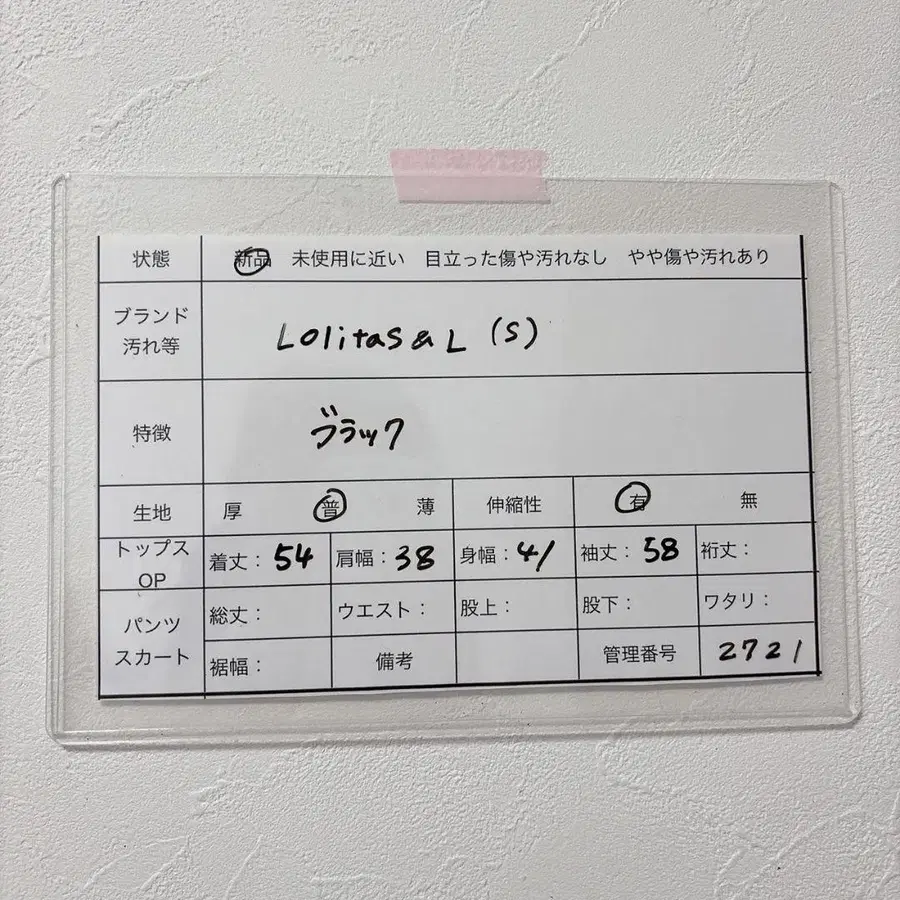 状態 新品 未使用に近い 目立った傷や汚れなし やや傷や汚れあり
ブランド
汚れ等
LolitaS&L (S)
特徴 ブラック
生地 厚 普 薄 伸縮性 有 無
トップス
OP
着丈: 54 肩幅: 38 身幅: 41 袖丈: 58 裄丈:
パンツ
スカート
総丈: ウエスト: 股上: 股下: ワタリ:
裾幅: 備考 管理番号 2721